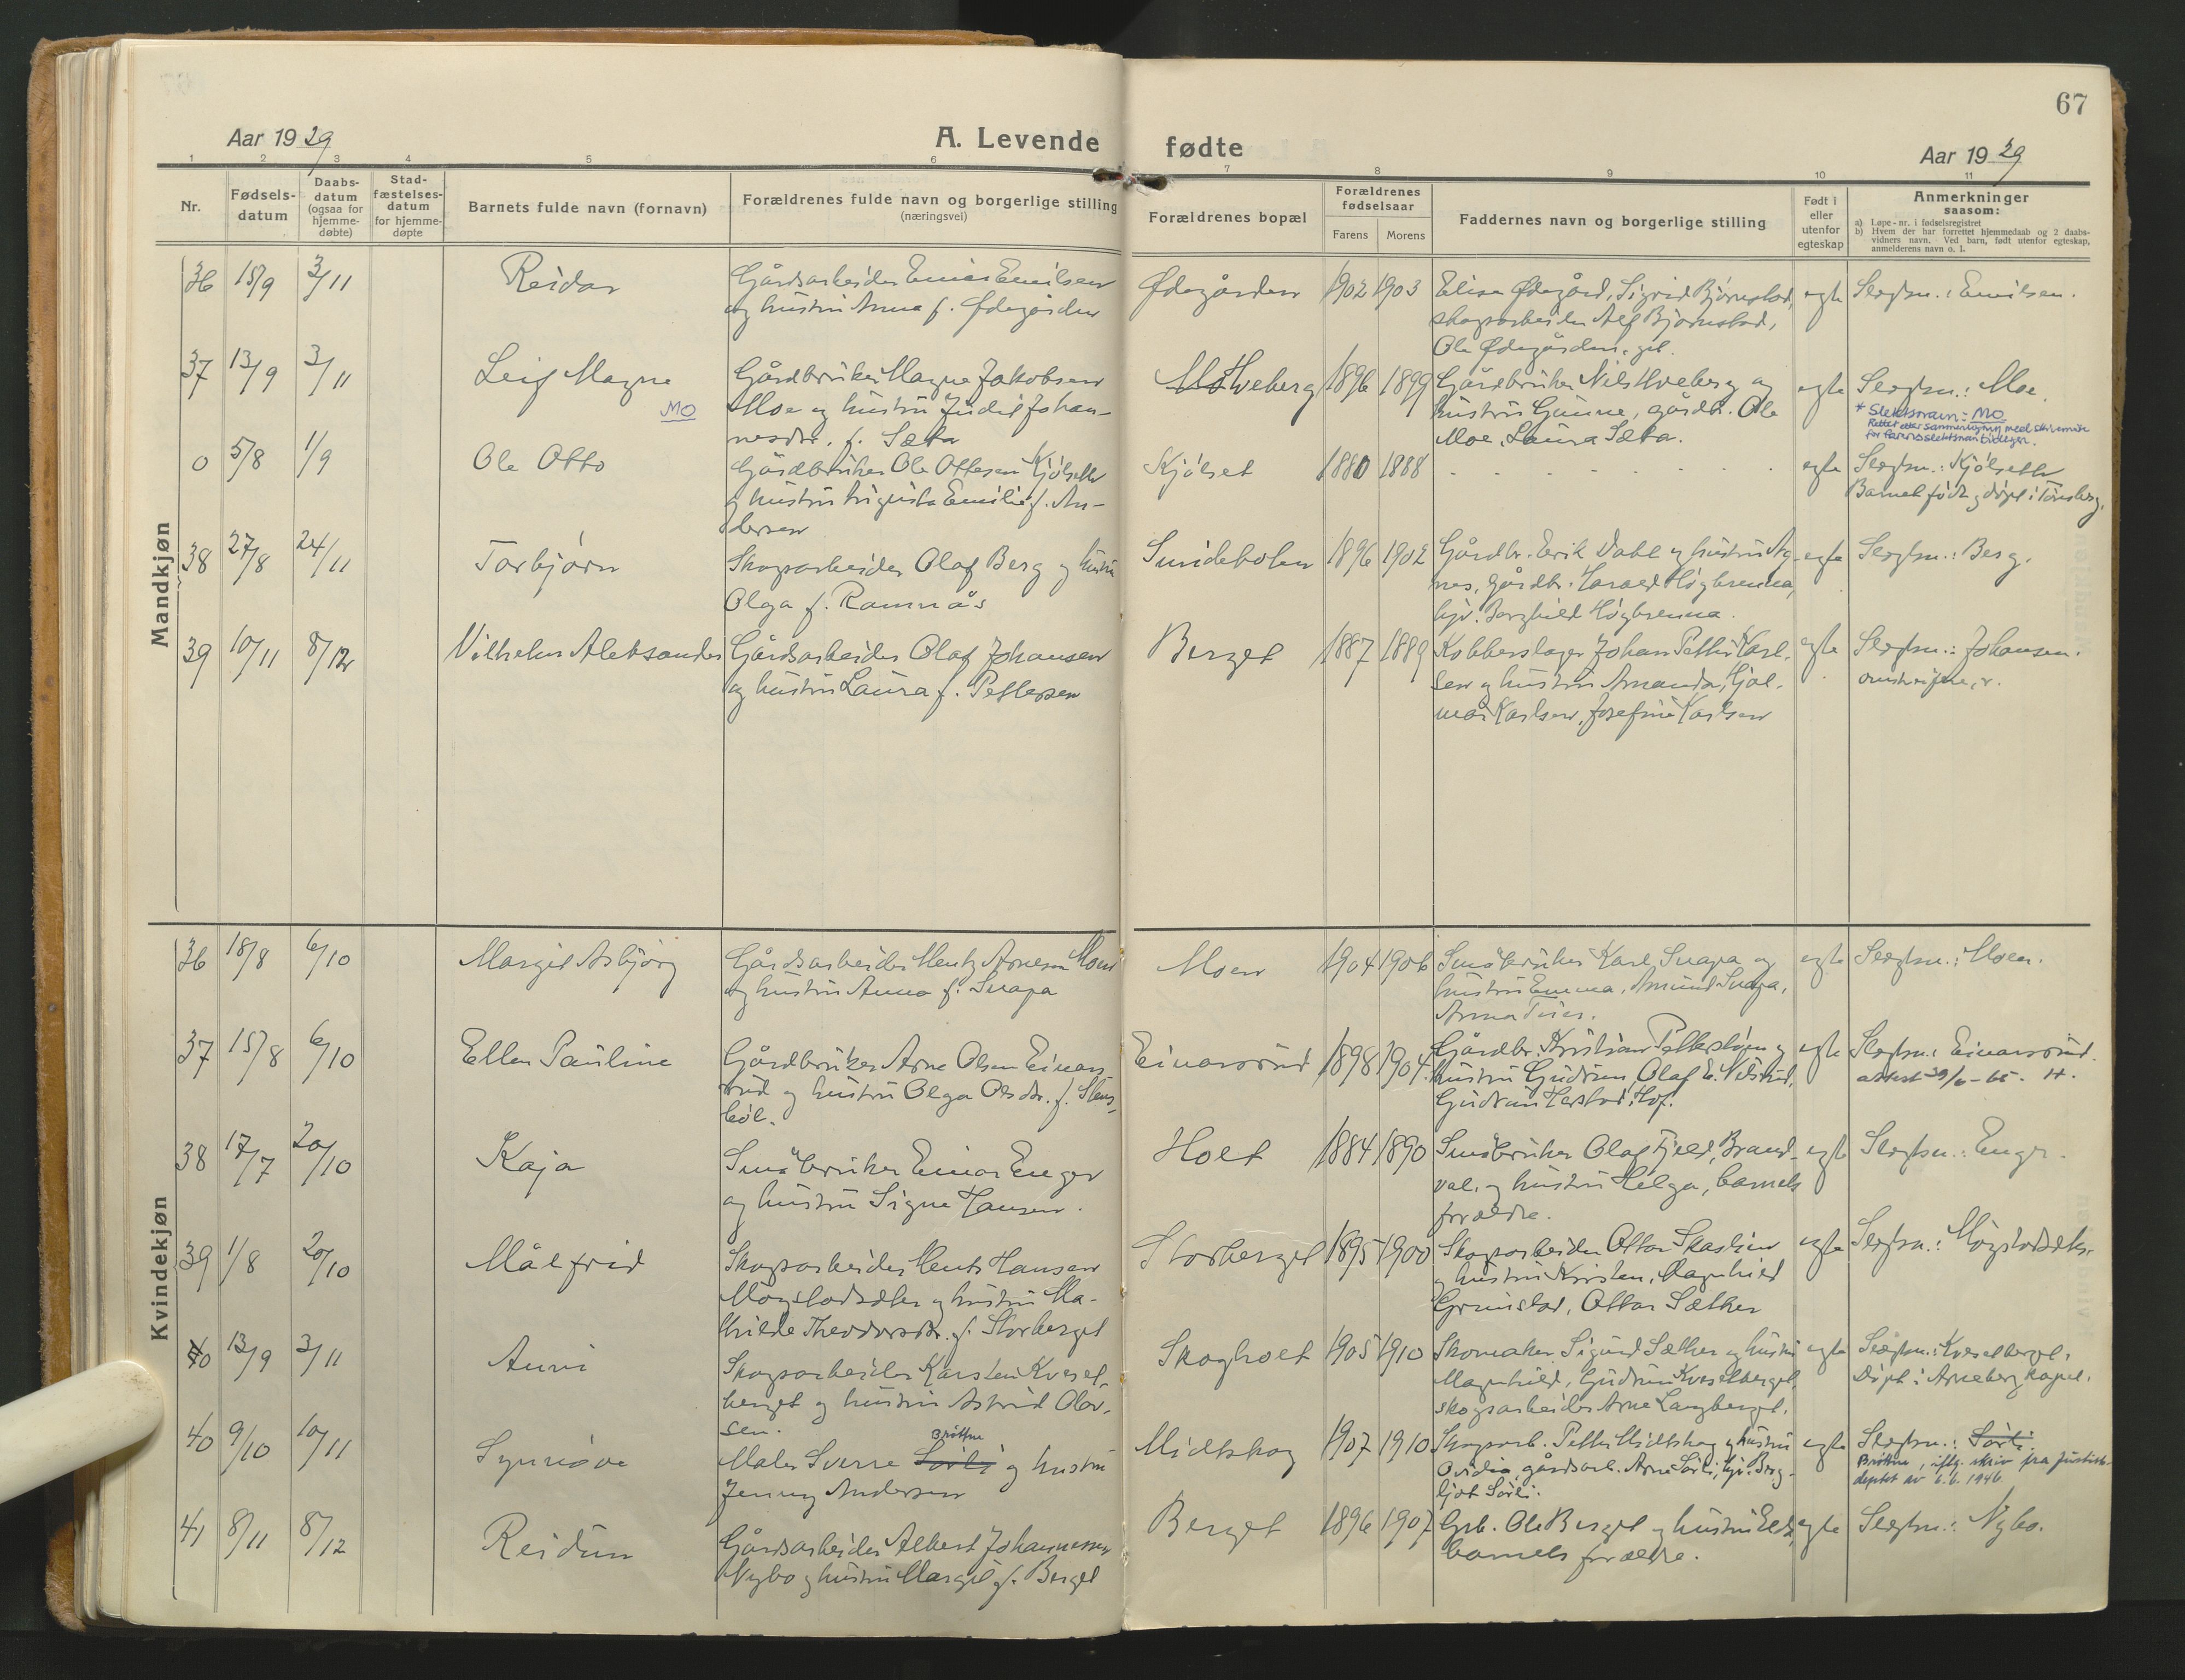 67
Aar 1929
A. Levende fødte
Aar 1929
1 2 3 4 5 6 7 8 9 10 11
Nr.
Fødsels-
datum
Daabs-
datum
(ogsaa for
hjemme-
døbte)
Stad-
fæstelses-
datum
for hjemme-
døpte
Barnets fulde navn (fornavn)
Forældrenes fulde navn og borgerlige stilling
(næringsvei)
Forældrenes bopæl
Forældrenes
fødselsaar
Farens Morens
Faddernes navn og borgerlige stilling
Født i
eller
utenfor
egteskap
Anmerkninger
saasom:
a) Løpe-nr. i fødselsregistret
b) Hvem der har forrettet hjemmedaab og 2 daabs-
vidners navn. Ved barn, født utenfor egteskap,
anmelderens navn o. l.
Mandkjøn
36 15/9 3/11 Reidar
Gårdsarbeider Einar Emilsen
og hustru Anna f. Ødegården
Ødegården 1902 1903
Elise Ødegård, Sigrid Bjørnstad,
skogsarbeider Alf Bjørnstad,
Ole Ødegården, gbr.
egte Slegtsn.: Emilsen.
37 13/9 3/11 Leif Magne
MO
Gårdbruker Magne Jakobsen
Moe og hustru Judit Johan-
nesdtr. f. Sæta
Hveberg 1896 1899
Gårdbruker Nils Hveberg og
hustru Gunne, gårdbr. Ole
Moe, Laura Sæta.
egte Slegtsn.: Moe.
* Slektsnavn: MO
Rettet etter sammenligning med skrivemåte
for farens slektsnavn tidligere.
0 5/8 1/9 Ole Otto
Gårdbruker Ole Ottesen Kjølseth
og hustru Augusta Emilie f. An-
dersen
Kjølset 1880 1888
egte Slegtsn.: Kjølseth
Barnet født og døpt i Tønsberg.
38 27/8 24/11 Torbjørn
Skogsarbeider Olaf Berg og hustru
Olga f. Ramnås
Sundebolen 1896 1902
Gårdbr. Erik Dahl og hustru Ag-
nes, gårdbr. Harald Høgbrenna,
Borghild Høgbrenna.
egte Slegtsn.: Berg.
39 10/11 8/12 Vilhelm Aleksander
Gårdsarbeider Olaf Johansen
og hustru Laura f. Pettersen
Berget 1887 1889
Kobberslager Johan Petter Karl-
sen og hustru Amanda, Hjal-
mar Karlsen, Josefine Karlsen
egte Slegtsn.: Johansen.
Kvindekjøn
36 18/8 6/10 Margit Asbjørg
Gårdsarbeider Mentz Arnesen Moen
og hustru Anna f. Snapa
Moen 1904 1906
Småbruker Karl Snapa og
hustru Emma, Amund Snapa,
Anna
egte Slegtsn.: Moen.
37 15/8 6/10 Ellen Pauline
Gårdbruker Arne Olsen Einars-
rud og hustru Olga Olsdtr. f. Stens-
bøl.
Einarsrud 1898 1904
Gårdbr. Kristian og
hustru Gudrun, Olaf E. Nilsrud,
Gudrun Hof.
egte Slegtsn.: Einarsrud.
attest 29/6-65. H.
38 17/7 20/10 Kaja
Småbruker Einar Enger
og hustru Signe Hansen.
Holt 1884 1890
Småbruker Olaf Fjeld, Brand-
val, og hustru Helga, barnets
forældre.
egte Slegtsn.: Enger.
39 1/8 20/10 Målfrid
Skogsarbeider Mentz Hansen
Møystadsæter og hustru Ma-
thilde Theodorsdtr. f. Storberget
Storberget 1895 1900
Skogsarbeider Ottar Skaslien
og hustru Kirsten, Ragnhild
Grinistad, Ottar Sæther
egte Slegtsn.: Møystadsæter.
40 13/9 3/11 Anni
Skogsarbeider Karsten Kvesel-
berget og hustru Astrid Olav-
sen.
Skogholt 1905 1910
Skomaker Sigurd Sæther og hustru
Magnhild, Gudrun Kveselberget,
skogsarbeider Arne Langberget.
egte Slegtsn.: Kveselberget.
Døpt i Arneberg kapel.
40 9/10 10/11 Synnøve
Bråthe
Maler Sverre Sørli og hustru
Jenny Andersen
Midtskog 1907 1910
Skogsarb. Petter Midtskog og hustru
Ovidia, gårdsarb. Arne Sørli, Berg-
ljot Sørli.
egte Slegtsn.: Sørli
Bråthe, iflg. skriv fra Justis-
deptet av 6.6.1946.
41 8/11 8/12 Reidun
Gårdsarbeider Albert Johannessen
Nybo og hustru Margit f. Berget
Berget 1896 1907
Grb. Ole Berget og hustru
barnets forældre.
egte Slegtsn.: Nybo.